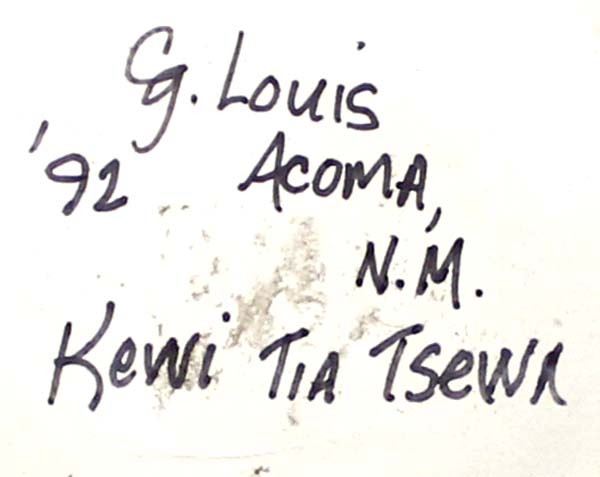 G. Louis
'92 Acoma,
N.M.
Kewi Tia Tsewa